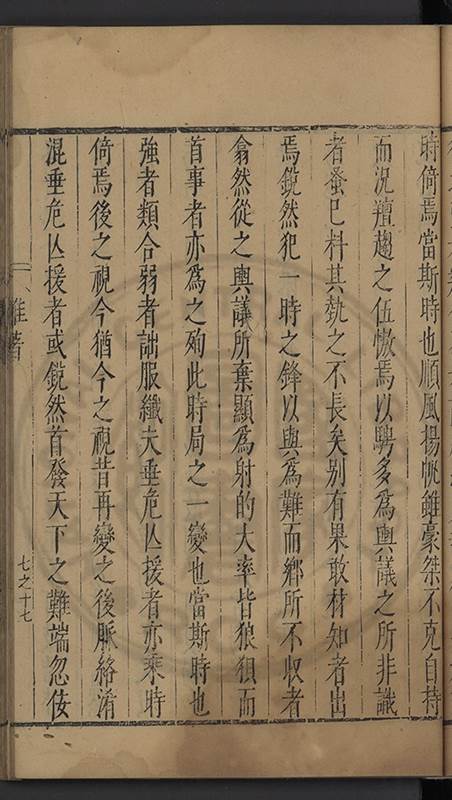 時倚焉當斯時也順風揚帆雖豪桀不克自持
而況羶趨之伍憿焉以騁多為輿議之所非讖
者蚤巳料其埶之不長矣別有果敢材知者出
焉銳然犯一時之鋒以輿為難而鄉所不收者
翕然從之輿議所棄顯為射的大率皆狼狽而
首事者亦為之殉此時局之一變也當斯時也
強者類合弱者詘服纖夫垂危亾援者亦乘時
倚焉後之視今猶今之視昔再變之後脈絡淆
混垂危亾援者或銳然首發天下之難端忽伎
雜著
七之十七